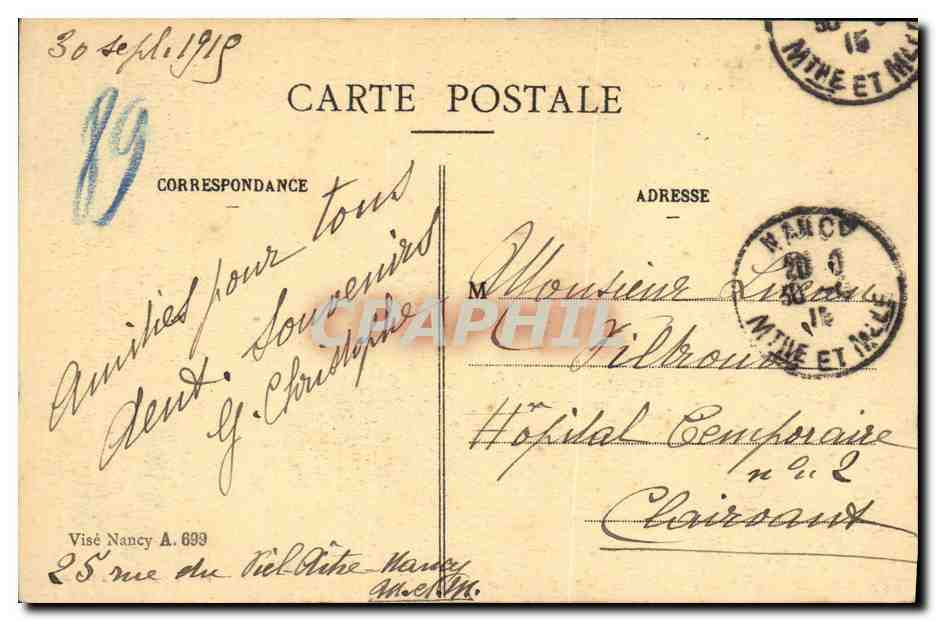 30 sept. 1915
CARTE POSTALE
89
CORRESPONDANCE
ADRESSE
Amitiés pour tous
dent. Souvenirs
G. Christophe
M
Monsieur Lucien
Hôpital Temporaire
n° 2
Clairvaux
Visé Nancy A. 699
25 rue du Viel-Aître Nancy
M.et.M.
NANCY
20
30
15
MTHE ET MLLE
15
MTHE ET MLLE
CPAPHIL